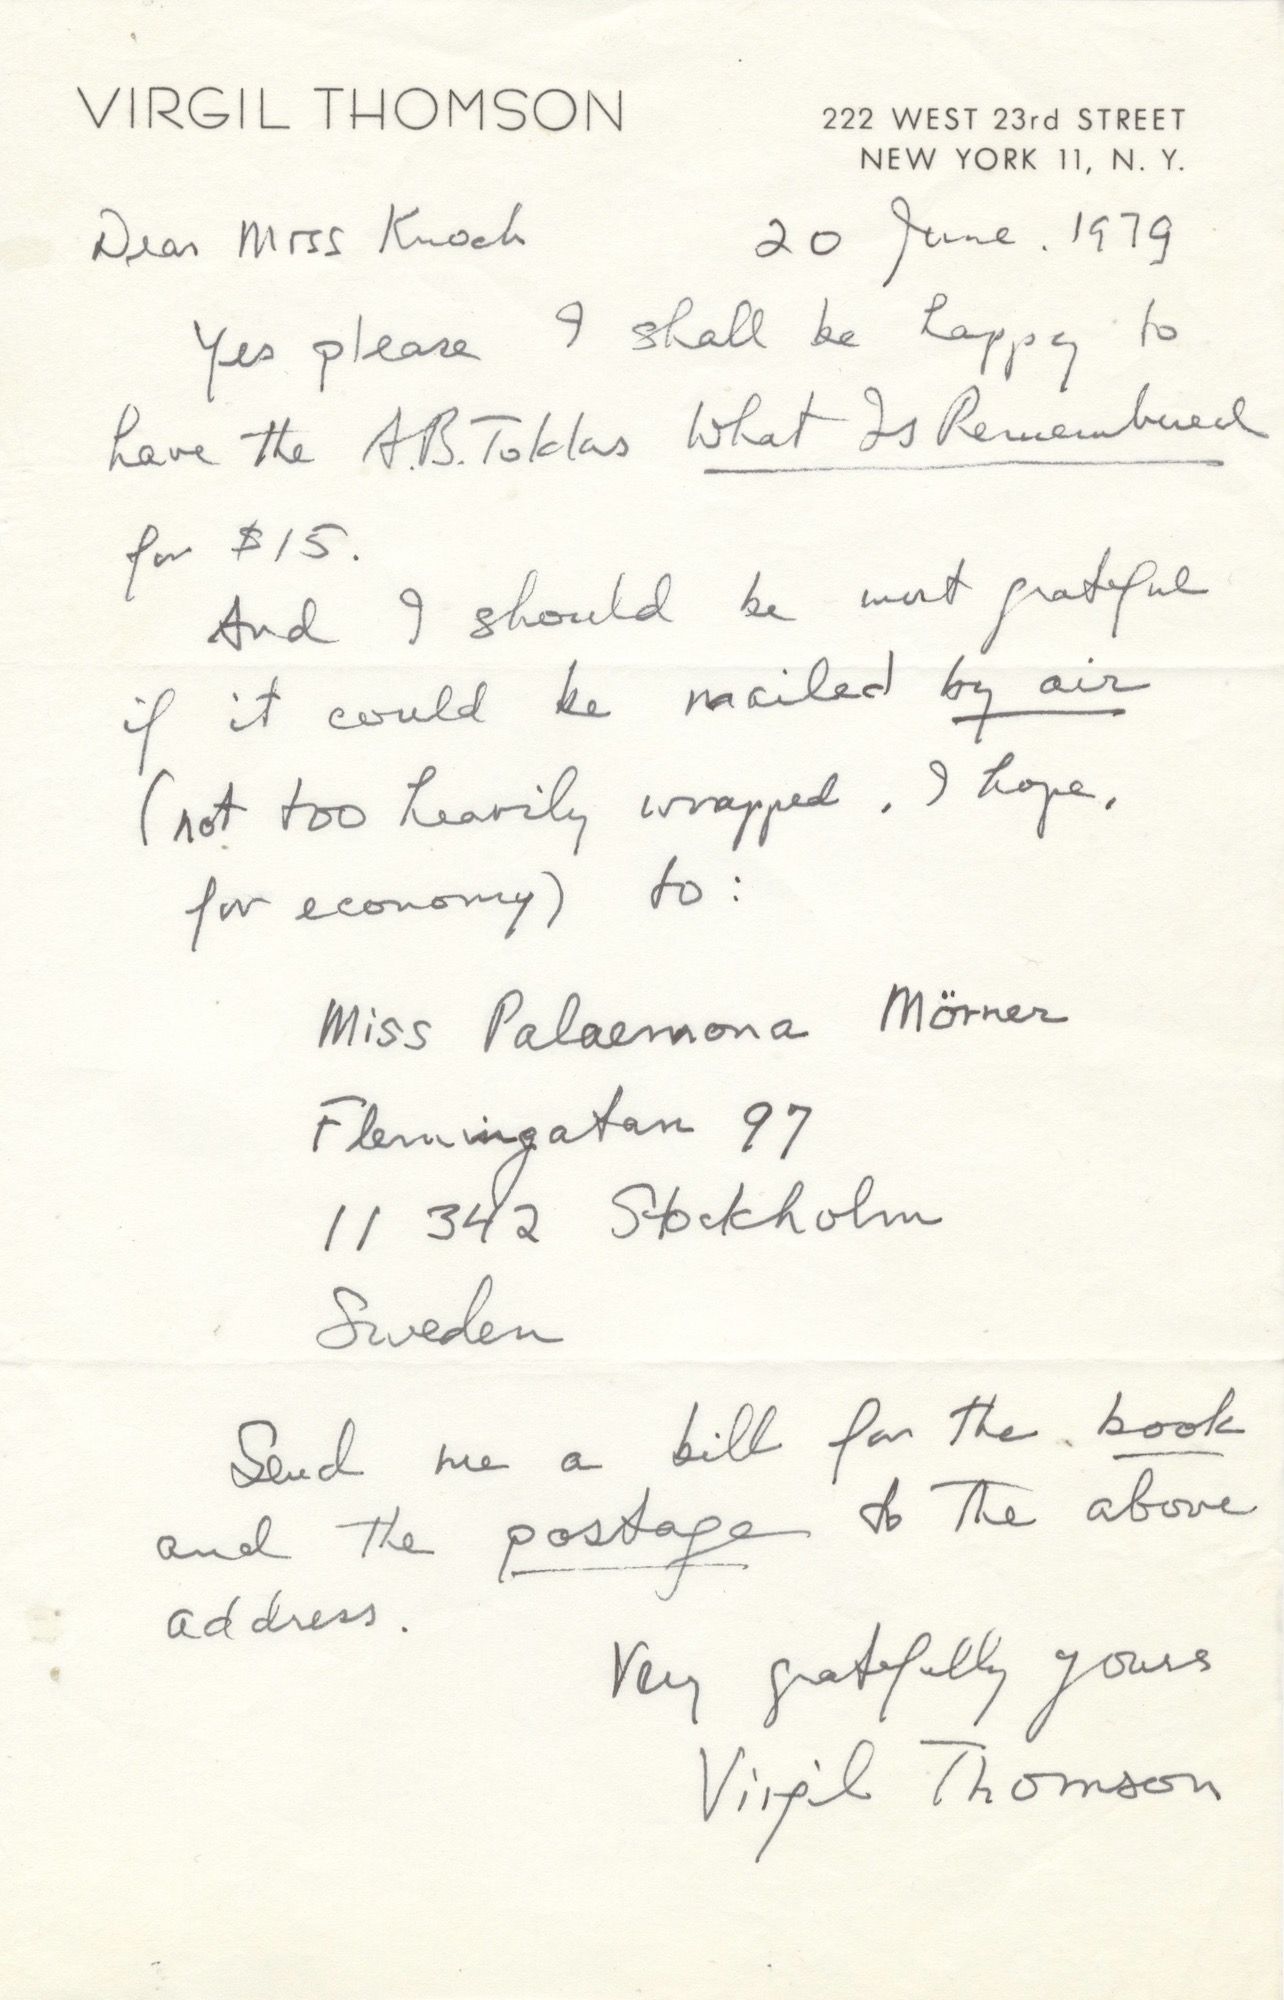 VIRGIL THOMSON
222 WEST 23rd STREET
NEW YORK 11, N. Y.
Dear Miss Knoch 20 June. 1979
Yes please I shall be happy to
have the A.B. Toklas What Is Remembered
for $15.
And I should be most grateful
if it could be mailed by air
(not too heavily wrapped, I hope,
for economy) to:
Miss Palaemona Mörner
Flemingatan 97
11 342 Stockholm
Sweden
Send me a bill for the book
and the postage to the above
address.
Very gratefully yours
Virgil Thomson